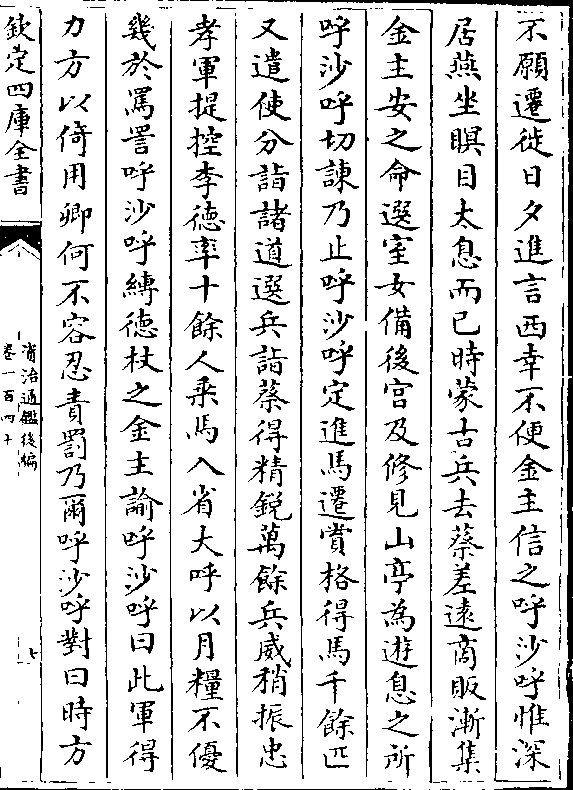 不願遷徙日夕進言西幸不便金主信之呼沙呼惟深
居燕坐瞑目太息而已時蒙古兵去蔡差遠商販漸集
金主安之命選室女備後宫及修見山亭為遊息之所
呼沙呼切諫乃止呼沙呼定進馬遷賞格得馬千餘匹
又遣使分詣諸道選兵詣蔡得精鋭萬餘兵威稍振忠
孝軍提控李德率十餘人乗馬入省大呼以月糧不優
幾於罵詈呼沙呼縛德杖之金主諭呼沙呼曰此軍得
力方以倚用卿何不容忍責罰乃爾呼沙呼對曰時方
欽定四庫全書
資治通鑑後編
卷一百四十
七